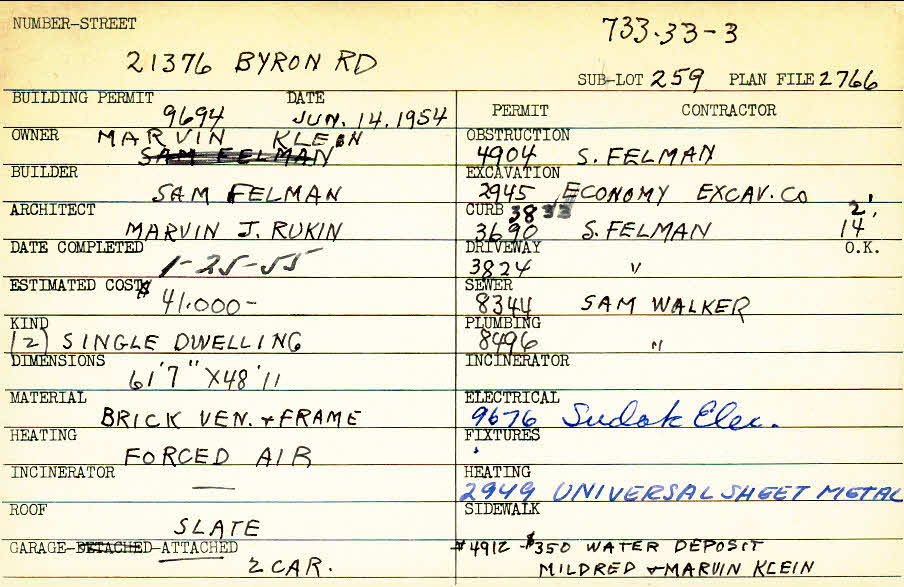 NUMBER-STREET
733-33-3
21376 BYRON RD
SUB-LOT 259 PLAN FILE 2766
BUILDING PERMIT DATE
9694 JUN. 14. 1954
OWNER MARVIN KLEIN
SAM FELMAN
BUILDER
SAM FELMAN
ARCHITECT
MARVIN J. RUKIN
DATE COMPLETED
1-25-55
ESTIMATED COST $
41.000-
KIND
(2) SINGLE DWELLING
DIMENSIONS
61'7" X48'11
MATERIAL
BRICK VEN. + FRAME
HEATING
FORCED AIR
INCINERATOR
—
ROOF
SLATE
GARAGE-DETACHED-ATTACHED
2 CAR.
PERMIT CONTRACTOR
OBSTRUCTION
4904 S. FELMAN
EXCAVATION
2945 ECONOMY EXCAV. CO
CURB 3833 2'
3690 S. FELMAN 14'
DRIVEWAY O.K.
3824 "
SEWER
8344 SAM WALKER
PLUMBING
8496 "
INCINERATOR
ELECTRICAL
9676 Sudak Elec.
FIXTURES
HEATING
2949 UNIVERSAL SHEET METAL
SIDEWALK
#4912-$350 WATER DEPOSIT
MILDRED + MARVIN KLEIN